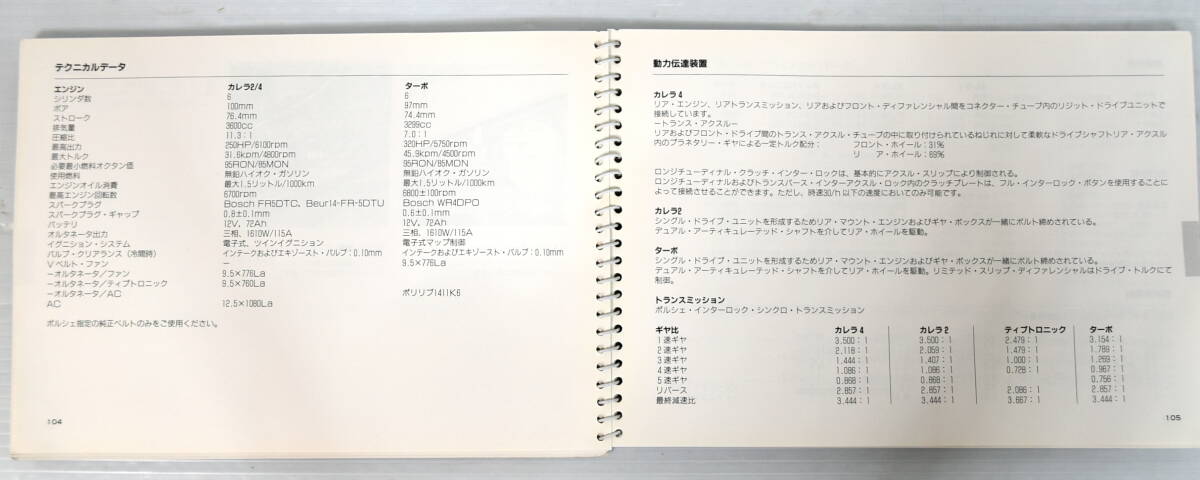 テクニカルデータ
エンジン カレラ2/4 ターボ
シリンダ数 6 6
ボア 100mm 97mm
ストローク 76.4mm 74.4mm
排気量 3600cc 3299cc
圧縮比 11.3:1 7.0:1
最高出力 250HP/6100rpm 320HP/5750rpm
最大トルク 31.6kpm/4800rpm 45.9kpm/4500rpm
必要最小燃料オクタン価 95RON/85MON 95RON/85MON
使用燃料 無鉛ハイオク・ガソリン 無鉛ハイオク・ガソリン
エンジンオイル消費 最大1.5リットル/1000km 最大1.5リットル/1000km
最高エンジン回転数 6700rpm 6800±100rpm
スパークプラグ Bosch FR5DTC、Beur14-FR-5DTU Bosch WR4DPO
スパークプラグ・ギャップ 0.8±0.1mm 0.6±0.1mm
バッテリ 12V、72Ah 12V、72Ah
オルタネータ出力 三相、1610W/115A 三相、1610W/115A
イグニション・システム 電子式、ツインイグニション 電子式マップ制御
バルブ・クリアランス(冷間時) インテークおよびエキゾースト・バルブ:0.10mm インテークおよびエキゾースト・バルブ:0.10mm
Vベルト・ファン － 9.5×776La
－オルタネータ/ファン 9.5×776La
－オルタネータ/ティプトロニック 9.5×760La
－オルタネータ/AC ポリリブ1411K6
AC 12.5×1080La
ポルシェ指定の純正ベルトのみをご使用ください。
104
動力伝達装置
カレラ4
リア・エンジン、リアトランスミッション、リアおよびフロント・ディファレンシャル間をコネクター・チューブ内のリジット・ドライブユニットで
接続しています。
－トランス・アクスル－
リアおよびフロント・ドライブ間のトランス・アクスル・チューブの中に取り付けられているねじれに対して柔軟なドライブシャフトリア・アクスル
内のプラネタリー・ギヤによる一定トルク配分: フロント・ホイール:31%
リ ア・ホイール:69%
ロンジチューディナル・クラッチ・インター・ロックは、基本的にアクスル・スリップにより制御される。
ロンジチューディナルおよびトランスバース・インターアクスル・ロック内のクラッチプレートは、フル・インターロック・ボタンを使用することに
よって接続させることができます。ただし、時速30/h 以下の速度においてのみ可能です。
カレラ2
シングル・ドライブ・ユニットを形成するためリア・マウント・エンジンおよびギヤ・ボックスが一緒にボルト締めされている。
デュアル・アーティキュレーテッド・シャフトを介してリア・ホイールを駆動。
ターボ
シングル・ドライブ・ユニットを形成するためリア・マウント・エンジンおよびギヤ・ボックスが一緒にボルト締めされている。
デュアル・アーティキュレーテッド・シャフトを介してリア・ホイールを駆動。リミテッド・スリップ・ディファレンシャルはドライブ・トルクにて
制御。
トランスミッション
ポルシェ・インターロック・シンクロ・トランスミッション
ギヤ比 カレラ4 カレラ2 ティプトロニック ターボ
1速ギヤ 3.500:1 3.500:1 2.479:1 3.154:1
2速ギヤ 2.118:1 2.059:1 1.479:1 1.789:1
3速ギヤ 1.444:1 1.407:1 1.000:1 1.269:1
4速ギヤ 1.086:1 1.086:1 0.728:1 0.967:1
5速ギヤ 0.868:1 0.868:1 0.756:1
リバース 2.857:1 2.857:1 2.086:1 2.857:1
最終減速比 3.444:1 3.444:1 3.667:1 3.444:1
105